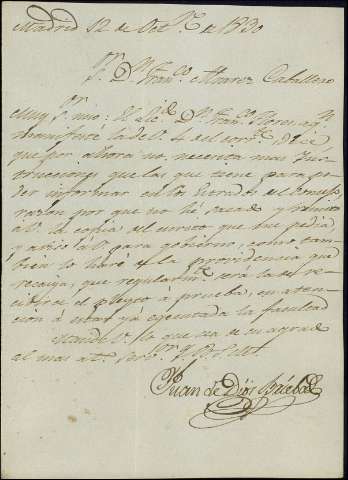 Madrid 12 de Oct.e de 1830
S.r D.n Fran.co Alvarez Caballero
Muy S.r mio: El Lic.do D.n Fran.co Flores, a q.n
manifesté la de V. 4 del corr.te dice
que por ahora no necesita mas Ins-
trucciones que las que tiene para po-
der informar en los Estrados el
razon por que no hé sacado y remito
a V. la copia del escrito que me pedia,
y aviso a V. para gobierno, como tam-
bien lo haré de la providencia que
recaiga, que regularm.te será la de re-
cibirse el pleyto á prueba, en aten-
ción á estar ya ejecutada la
mande V. lo que sea de su agrado
al mas at.o serv.r Q. B. S. M.
Juan de Dios